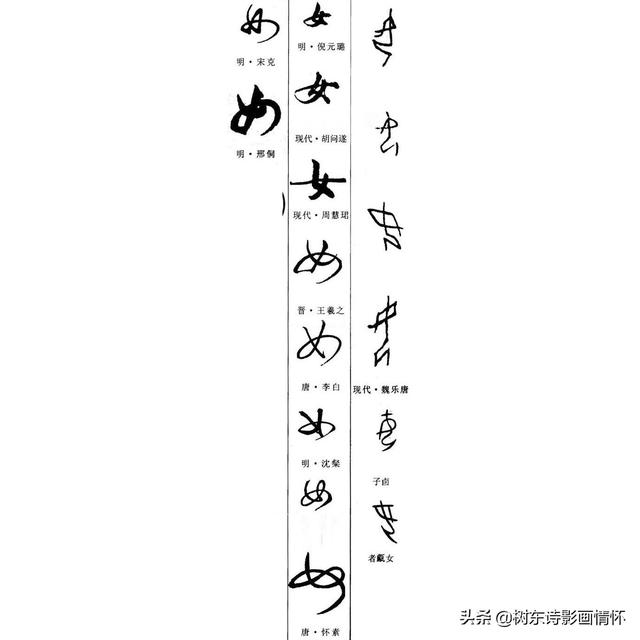 女
明·宋克
女
明·邢侗
女
明·倪元璐
女
现代·胡问遂
女
现代·周慧珺
女
晋·王羲之
女
唐·李白
女
明·沈粲
女
女
唐·怀素
现代·魏乐唐
子卣
者甗女
头条 @树东诗影画情怀